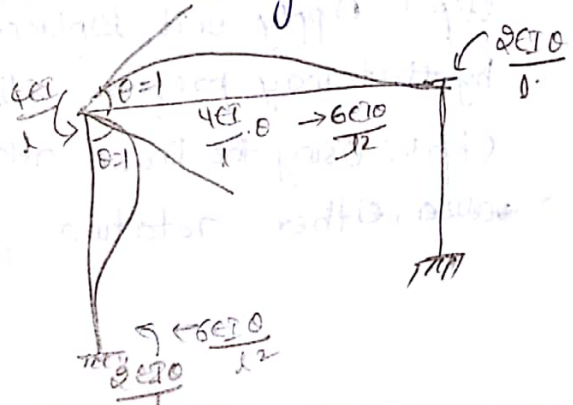 2EIθ
l
4EI
l
θ=1
4EI .θ
l
→6EIθ
l2
θ=1
←6EIθ
l2
2EIθ
l